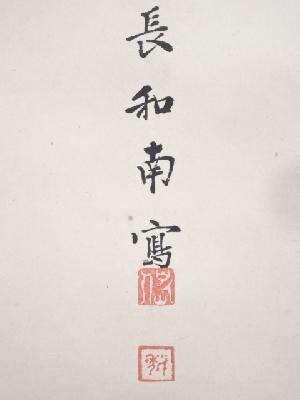 長和南寫